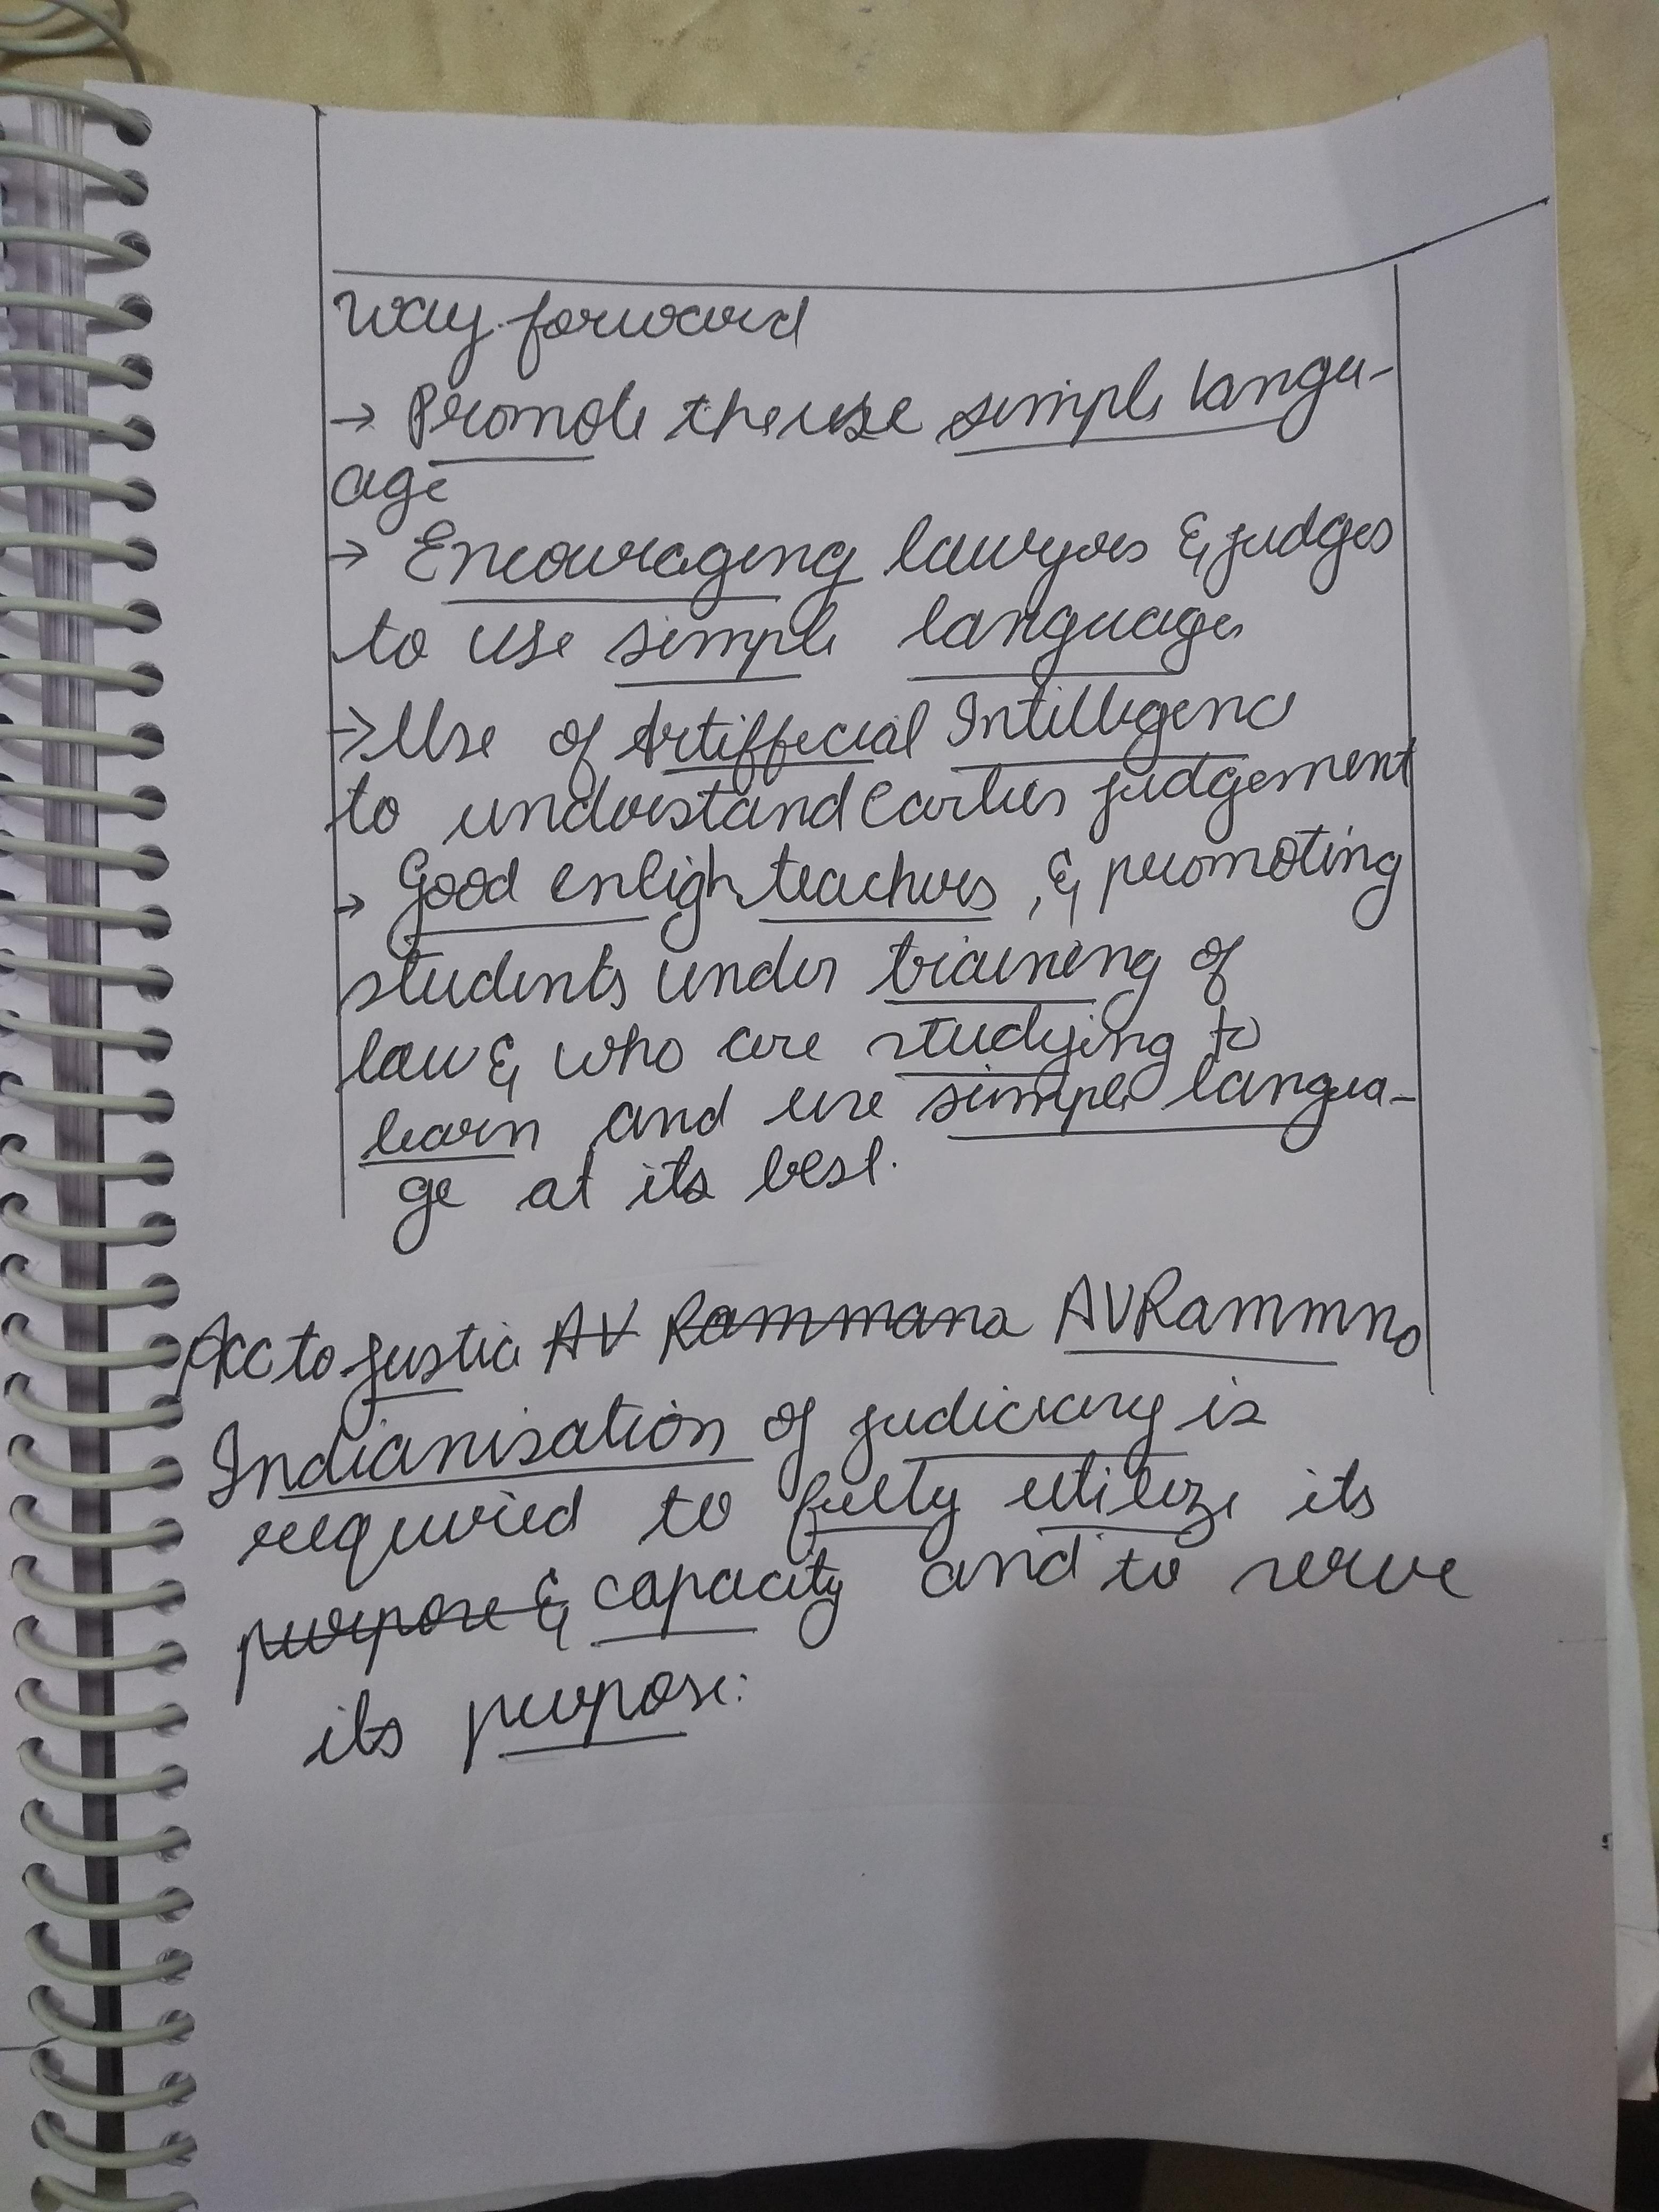 Way forward
→ Promote the use simple langu-
age
→ Encouraging lawyers & judges
to use simple language
→ Use of Artiffecial Intilligence
to understand earlier judgement
→ Good enligh teachers, & promoting
students under training of
law & who are studying to
learn and use simple langua-
ge at its best.
Acc to Justice AV Rammana AV Rammna
Indianisation of judiciary is
requried to fully utilize its
purpose & capacity and to serve
its purpose.